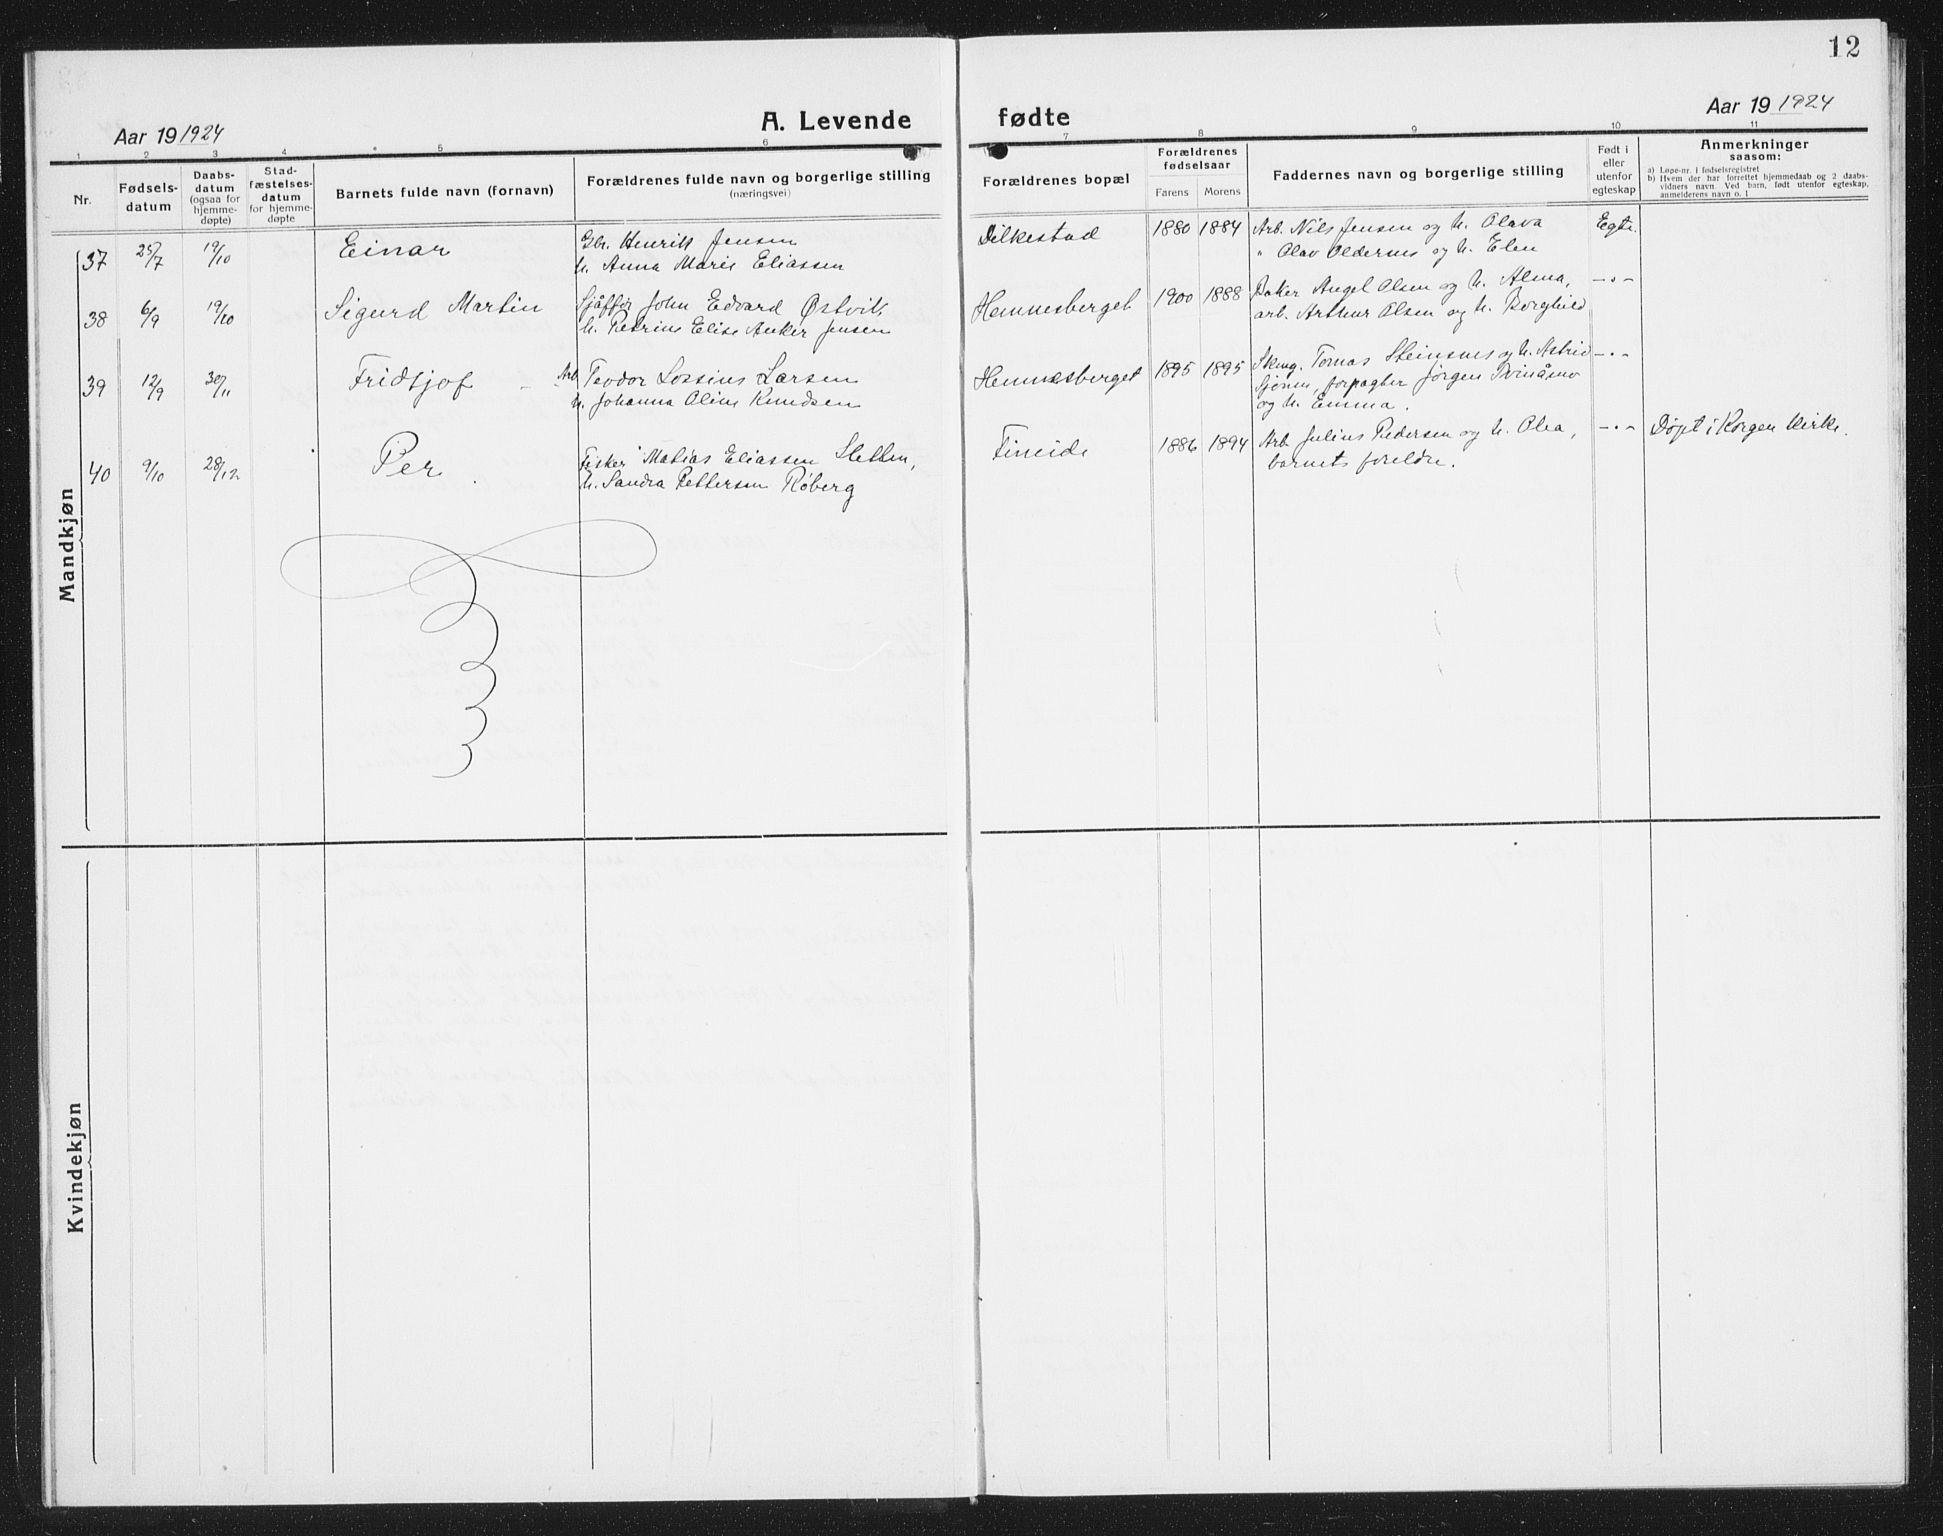 12
Aar 19 1924
A. Levende fødte
Aar 19 1924
1 2 3 4 5 6 7 8 9 10 11
Nr.
Fødsels-
datum
Daabs-
datum
(ogsaa for
hjemme-
døpte)
Stad-
fæstelses-
datum
for hjemme-
døpte
Barnets fulde navn (fornavn)
Forældrenes fulde navn og borgerlige stilling
(næringsvei)
Forældrenes bopæl
Forældrenes
fødselsaar
Farens Morens
Faddernes navn og borgerlige stilling
Født i
eller
utenfor
egteskap
Anmerkninger
saasom:
a) Løpe-nr. i fødselsregistret
b) Hvem der har forrettet hjemmedaab og 2 daabs-
vidners navn. Ved barn, født utenfor egteskap,
anmelderens navn o. l
Mandkjøn
37 25/7 19/10 Einar
Gbr. Henrik Jensen
h. Anna Marie Eliassen
Dilkestad 1880 1884
Arb. Nils Jensen og h. Olava
" Olav Oldernes og h. Elen
Egte.
38 6/9 19/10 Sigurd Martin
Sjåffør John Edvard Østvik,
h. Petrine Elise Anker Jensen
Hemnesberget 1900 1888
Baker Angel Olsen og h. Alma,
arb. Arthur Olsen og h. Borghild
-"-
39 12/9 30/11 Fridtjof
Arb. Teodor Lossius Larsen
h. Johanna Oline Knudsen
Hemnesberget 1895 1895
Skmg. Tomas Steinsnes og h. Astrid
Sjönes, forpagter Jørgen Tvinåmo
og h. Emma.
-"-
40 9/10 28/12 Per
Fisker Matias Eliassen Sletten,
h. Sandra Pettersen Røberg
Fineide 1886 1894
Arb. Julius Pedersen og h. Olea,
barnets foreldre.
-"-
Døpt i Korgen kirke.
Kvindekjøn